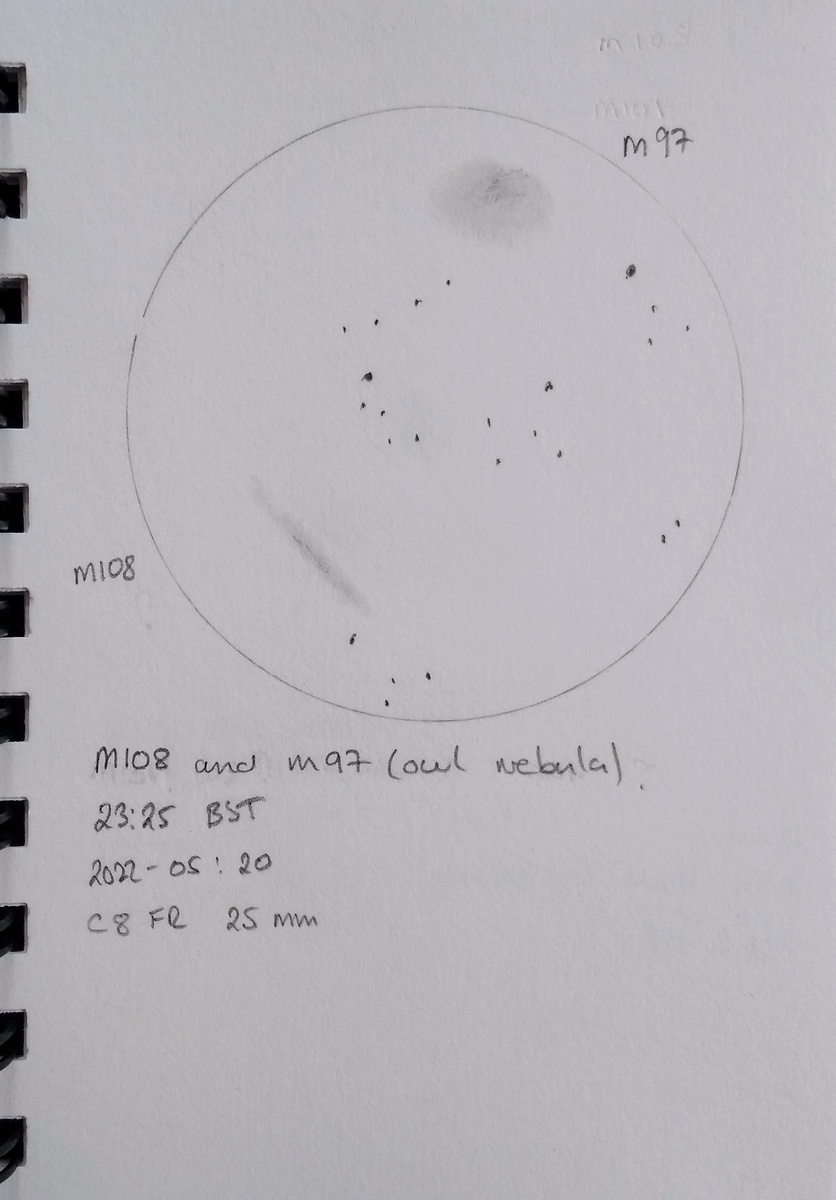 M 103
M101
M 97
M108
M108 and M97 (owl nebula).
23:25 BST
2022-05:20
C8 FR 25 mm